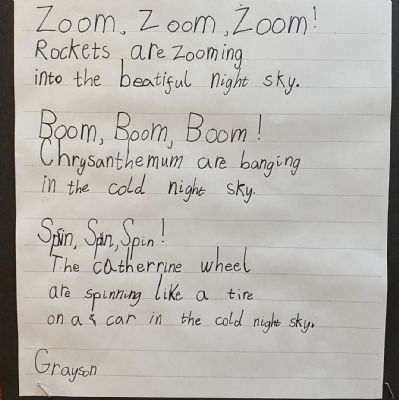 Zoom, Zoom, Zoom!
Rockets are zooming
into the beatiful night sky.
Boom, Boom, Boom!
Chrysanthemum are banging
in the cold night sky.
Spin, Spin, Spin!
The catherrine wheel
are spinning like a tire
on a car in the cold night sky.
Grayson